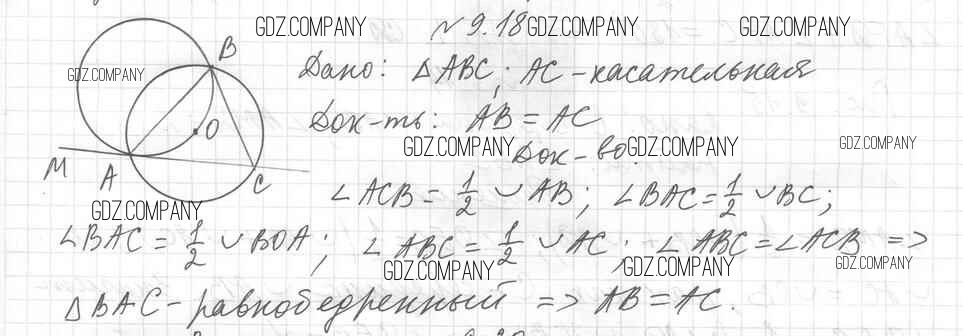 GDZ.COMPANY № 9.18 GDZ.COMPANY GDZ.COMPANY
B
GDZ.COMPANY Дано: △ABC; AC - касательная
O Док-ть: AB = AC
GDZ.COMPANY Док-во: GDZ.COMPANY GDZ.COMPANY
M A C
∠ACB = 1/2 ◡ AB; ∠BAC = 1/2 ◡ BC;
GDZ.COMPANY
∠BAC = 1/2 ◡ BOA; ∠ABC = 1/2 ◡ AC; ∠ABC = ∠ACB =>
GDZ.COMPANY GDZ.COMPANY GDZ.COMPANY
△BAC - равнобедренный => AB = AC.